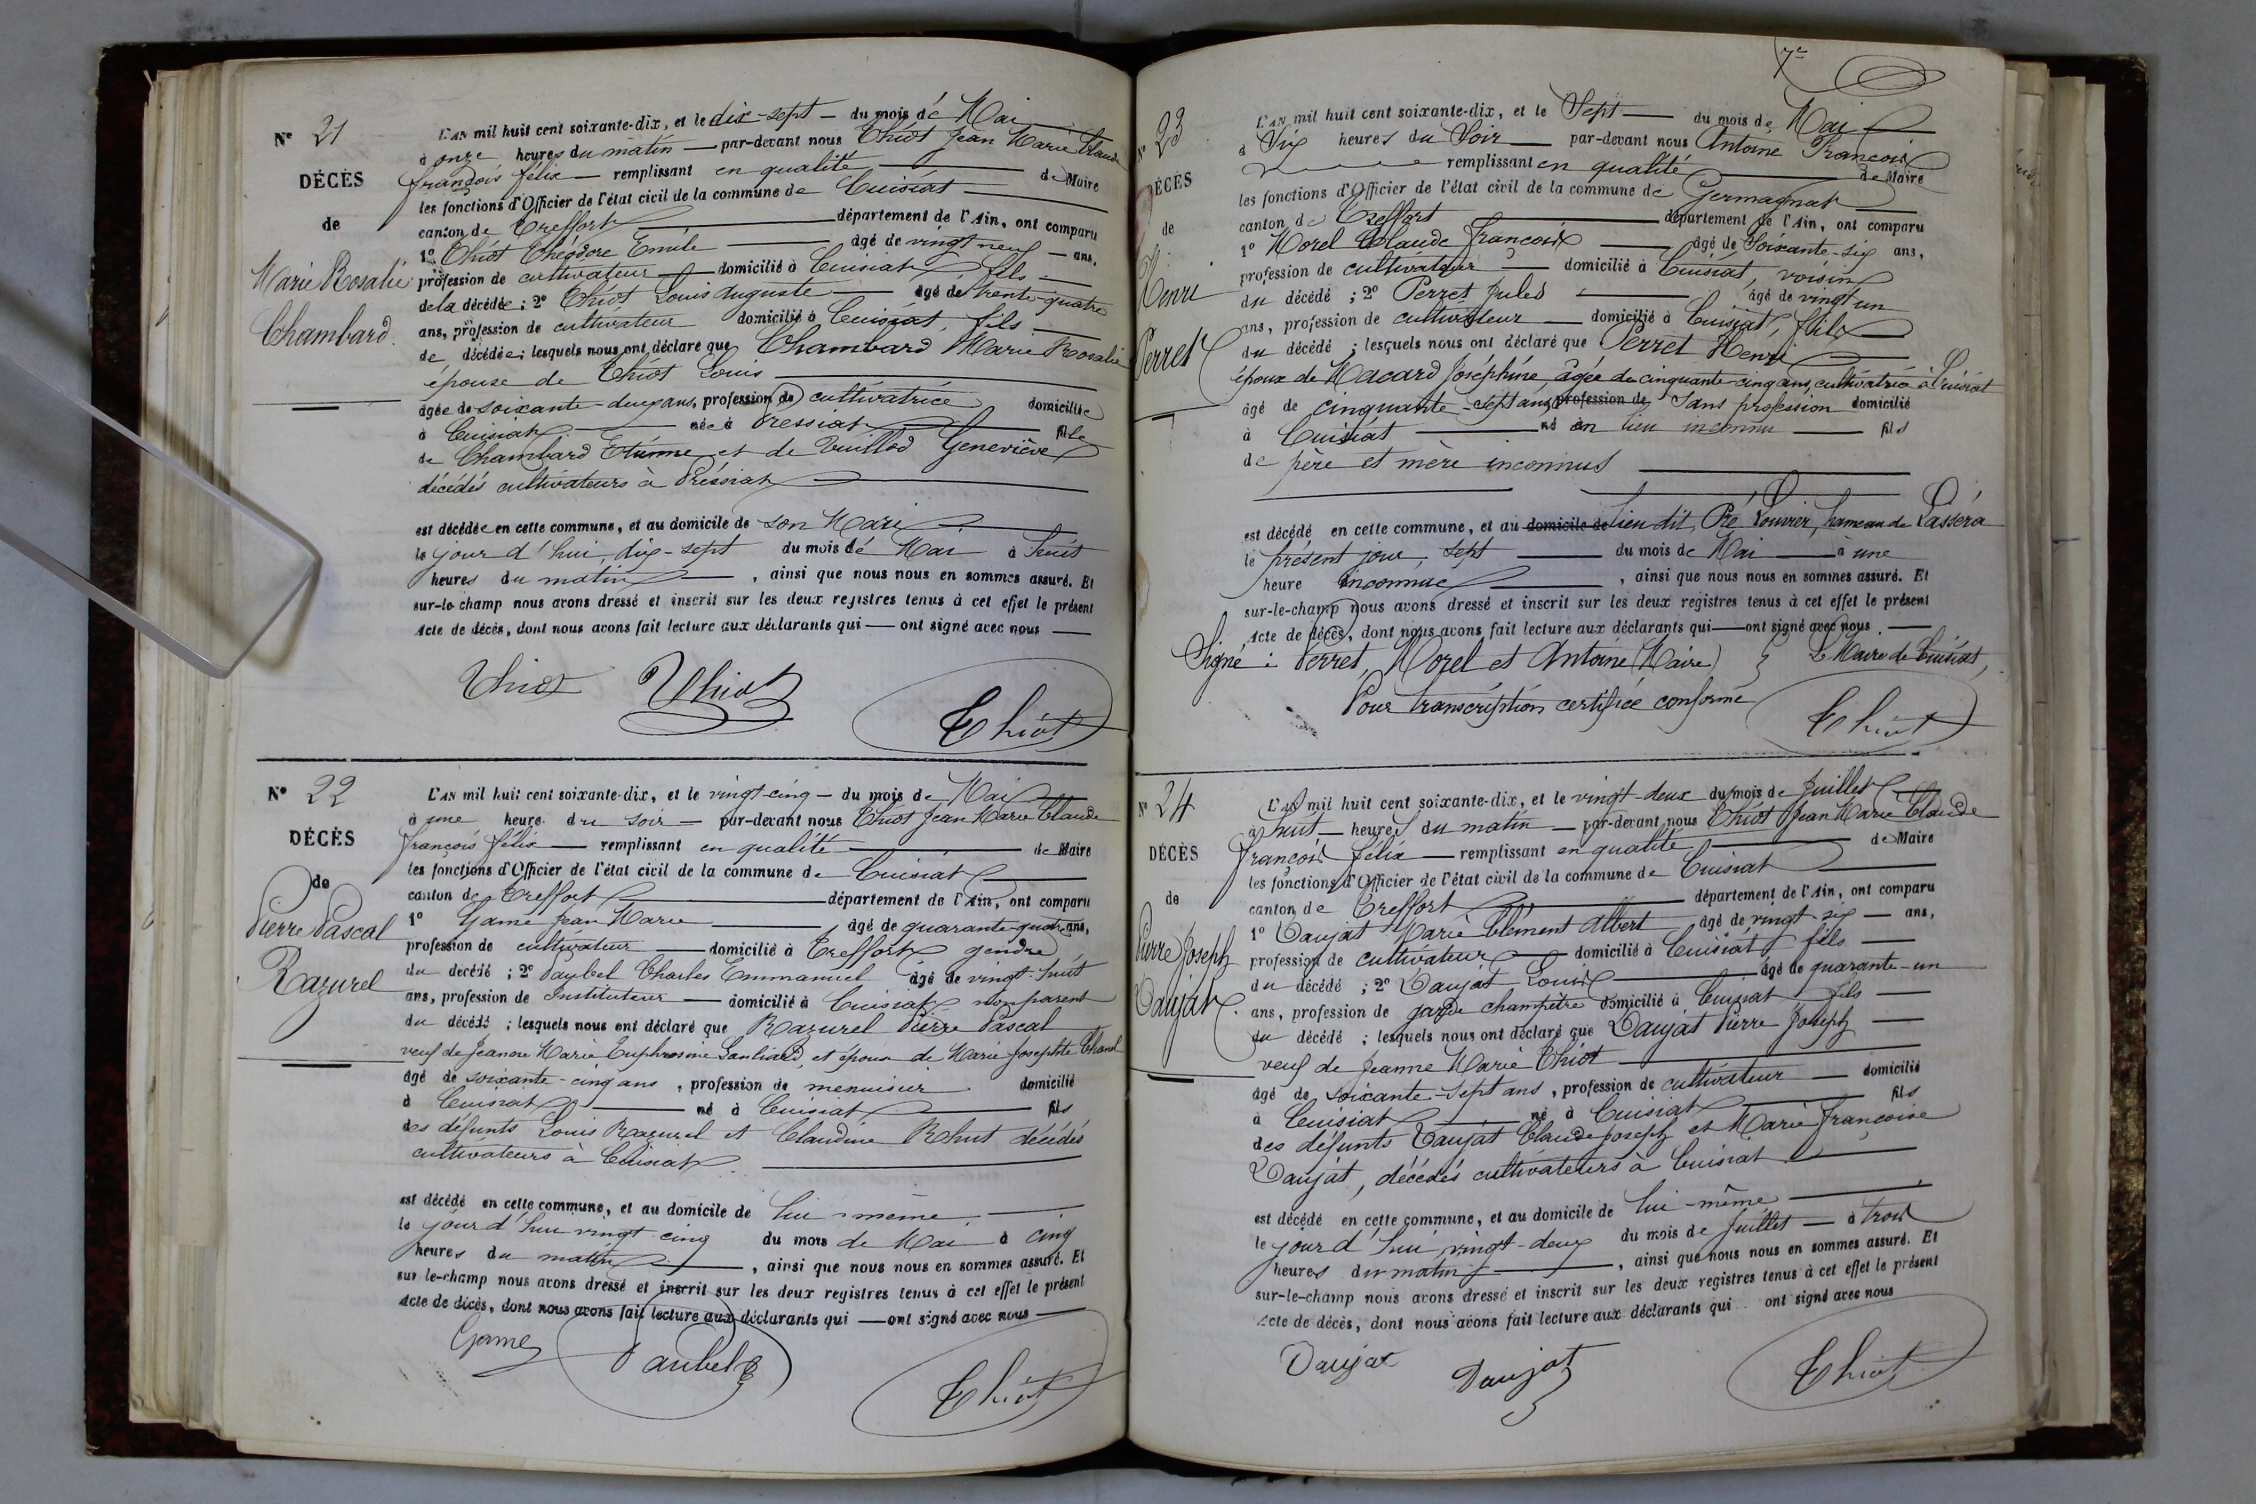 N° 21
DÉCÈS
de
Marie Rosalie
Chambard.
L'AN mil huit cent soixante-dix, et le dix-sept du mois de Mai
à onze heures du matin par-devant nous Thiot Jean Marie Claude
françois félix remplissant en qualité de Maire
les fonctions d'Officier de l'état civil de la commune de Cuisiat
canton de Treffort département de l'Ain, ont comparu
1° Thiot Théodore Emile âgé de vingt neuf ans,
profession de cultivateur domicilié à Cuisiat fils
de la décédée; 2° Thiot Louis Auguste âgé de trente-quatre
ans, profession de cultivateur domicilié à Cuisiat, fils
de décédée; lesquels nous ont déclaré que Chambard Marie Rosalie
épouse de Thiot Louis
âgée de soixante-deux ans, profession de cultivatrice domiciliée
à Cuisiat née à Pressiat fille
de Chambard Etienne et de Vuillod Geneviève
décédés cultivateurs à Préssiat
est décédée en cette commune, et au domicile de son Mari
le jour d'hui, dix-sept du mois de Mai à huit
heures du matin, ainsi que nous nous en sommes assuré. Et
sur-le-champ nous avons dressé et inscrit sur les deux registres tenus à cet effet le présent
Acte de décès, dont nous avons fait lecture aux déclarants qui ont signé avec nous
Thiot Thiot
Thiot
N° 22
DÉCÈS
de
Pierre Pascal
Razurel
L'AN mil huit cent soixante-dix, et le vingt-cinq du mois de Mai
à une heure du soir par-devant nous Thiot Jean Marie Claude
françois félix remplissant en qualité de Maire
les fonctions d'Officier de l'état civil de la commune de Cuisiat
canton de Treffort département de l'Ain, ont comparu
1° Game Jean Marie âgé de quarante-quatre ans,
profession de cultivateur domicilié à Treffort gendre
du décédé; 2° Paubel Charles Emmanuel âgé de vingt-huit
ans, profession de Instituteur domicilié à Cuisiat non parent
du décédé; lesquels nous ont déclaré que Razurel Pierre Pascal
veuf de Jeanne Marie Euphrosine et époux de Marie Josephte
âgé de soixante-cinq ans, profession de menuisier domicilié
à Cuisiat né à Cuisiat fils
des défunts Louis Razurel et Claudine Rhut décédés
cultivateurs à Cuisiat.
est décédé en cette commune, et au domicile de lui-même
le jour d'hui vingt cinq du mois de Mai à cinq
heures du matin, ainsi que nous nous en sommes assuré. Et
sur le-champ nous avons dressé et inscrit sur les deux registres tenus à cet effet le présent
Acte de décès, dont nous avons fait lecture aux déclarants qui ont signé avec nous
Game Paubel
Thiot
7e
N° 23
DÉCÈS
de
Henri
Perret
L'AN mil huit cent soixante-dix, et le Sept du mois de Mai
à Six heures du Soir par-devant nous Antoine François
remplissant en qualité de Maire
les fonctions d'Officier de l'état civil de la commune de Germagnat
canton de Treffort département de l'Ain, ont comparu
1° Morel Claude François âgé de Soixante-six ans,
profession de cultivateur domicilié à Cuisiat, voisin
du décédé; 2° Perret Jules âgé de vingt un
ans, profession de cultivateur domicilié à Cuisiat, fils
du décédé; lesquels nous ont déclaré que Perret Henri
époux de Macard Joséphine, âgée de cinquante-cinq ans, cultivatrice à Cuisiat
âgé de cinquante-sept ans, profession de Sans profession domicilié
à Cuisiat né en lieu inconnu fils
de père et mère inconnus
est décédé en cette commune, et au domicile de lieu dit, Pré Louvrier, hameau de Lasséra
le présent jour, sept du mois de Mai à une
heure inconnue, ainsi que nous nous en sommes assuré. Et
sur-le-champ nous avons dressé et inscrit sur les deux registres tenus à cet effet le présent
Acte de décès, dont nous avons fait lecture aux déclarants qui ont signé avec nous.
Signé: Perret, Morel et Antoine (Maire) Le Maire de Cuisiat,
Pour transcription certifiée conforme
Thiot
N° 24
DÉCÈS
de
Pierre Joseph
Daujat.
L'AN mil huit cent soixante-dix, et le vingt-deux du mois de Juillet
à huit heures du matin par-devant nous Thiot Jean Marie Claude
françois félix remplissant en qualité de Maire
les fonctions d'Officier de l'état civil de la commune de Cuisiat
canton de Treffort département de l'Ain, ont comparu
1° Daujat Marie Clément Albert âgé de vingt-six ans,
profession de cultivateur domicilié à Cuisiat fils
du décédé; 2° Daujat Louis âgé de quarante-un
ans, profession de garde champêtre domicilié à Cuisiat fils
du décédé; lesquels nous ont déclaré que Daujat Pierre Joseph
veuf de Jeanne Marie Thiot
âgé de soixante-sept ans, profession de cultivateur domicilié
à Cuisiat né à Cuisiat fils
des défunts Daujat Claude Joseph et Marie Françoise
Daujat, décédés cultivateurs à Cuisiat
est décédé en cette commune, et au domicile de lui-même
le jour d'hui vingt-deux du mois de Juillet à trois
heures du matin, ainsi que nous nous en sommes assuré. Et
sur-le-champ nous avons dressé et inscrit sur les deux registres tenus à cet effet le présent
Acte de décès, dont nous avons fait lecture aux déclarants qui ont signé avec nous
Daujat Daujat
Thiot